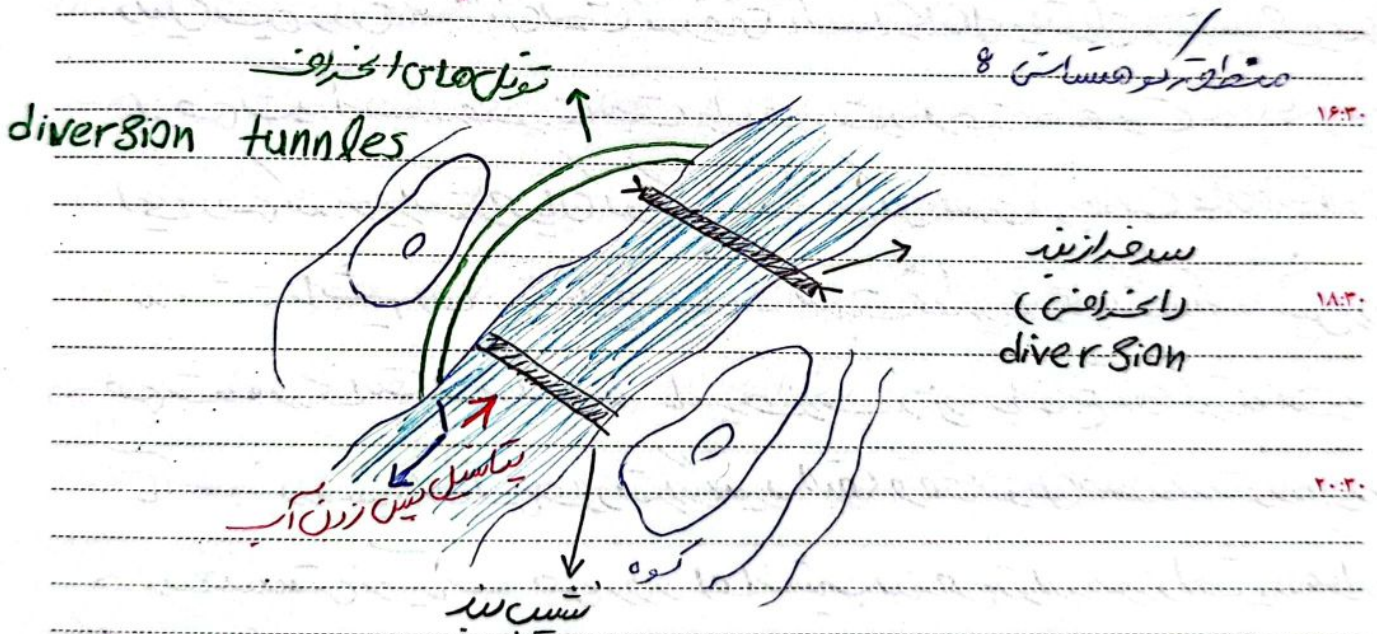 منطقه کوهستانی :
۱۶:۳۰
تونل‌های انحراف
diversion tunnles
سد فرازبند
(انحرافی)
diversion
۱۸:۳۰
پتانسیل پس زدن آب
۲۰:۳۰
کوه
نشیب بند